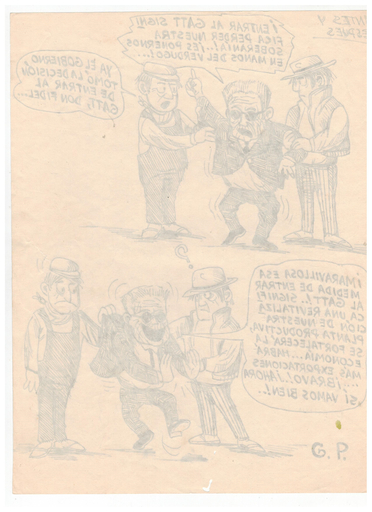 NTES Y
ESPUES
¡ENTRAR AL GATT SIGNI-
FICA PERDER NUESTRA
SOBERANIA! ¡ES PONERNOS
EN MANOS DEL VERDUGO!...
YA EL GOBIERNO
TOMO LA DECISION
DE ENTRAR AL
GATT, DON FIDEL...
?
¡MARAVILLOSA ESA
MEDIDA DE ENTRAR
AL GATT!.. SIGNIFI
CA UNA REVITALIZA
CION DE NUESTRA
PLANTA PRODUCTIVA,
SE FORTALECERA LA
ECONOMIA... HABRA
MAS EXPORTACIONES
... ¡BRAVO!.. ¡AHORA
SI VAMOS BIEN!..
G. P.